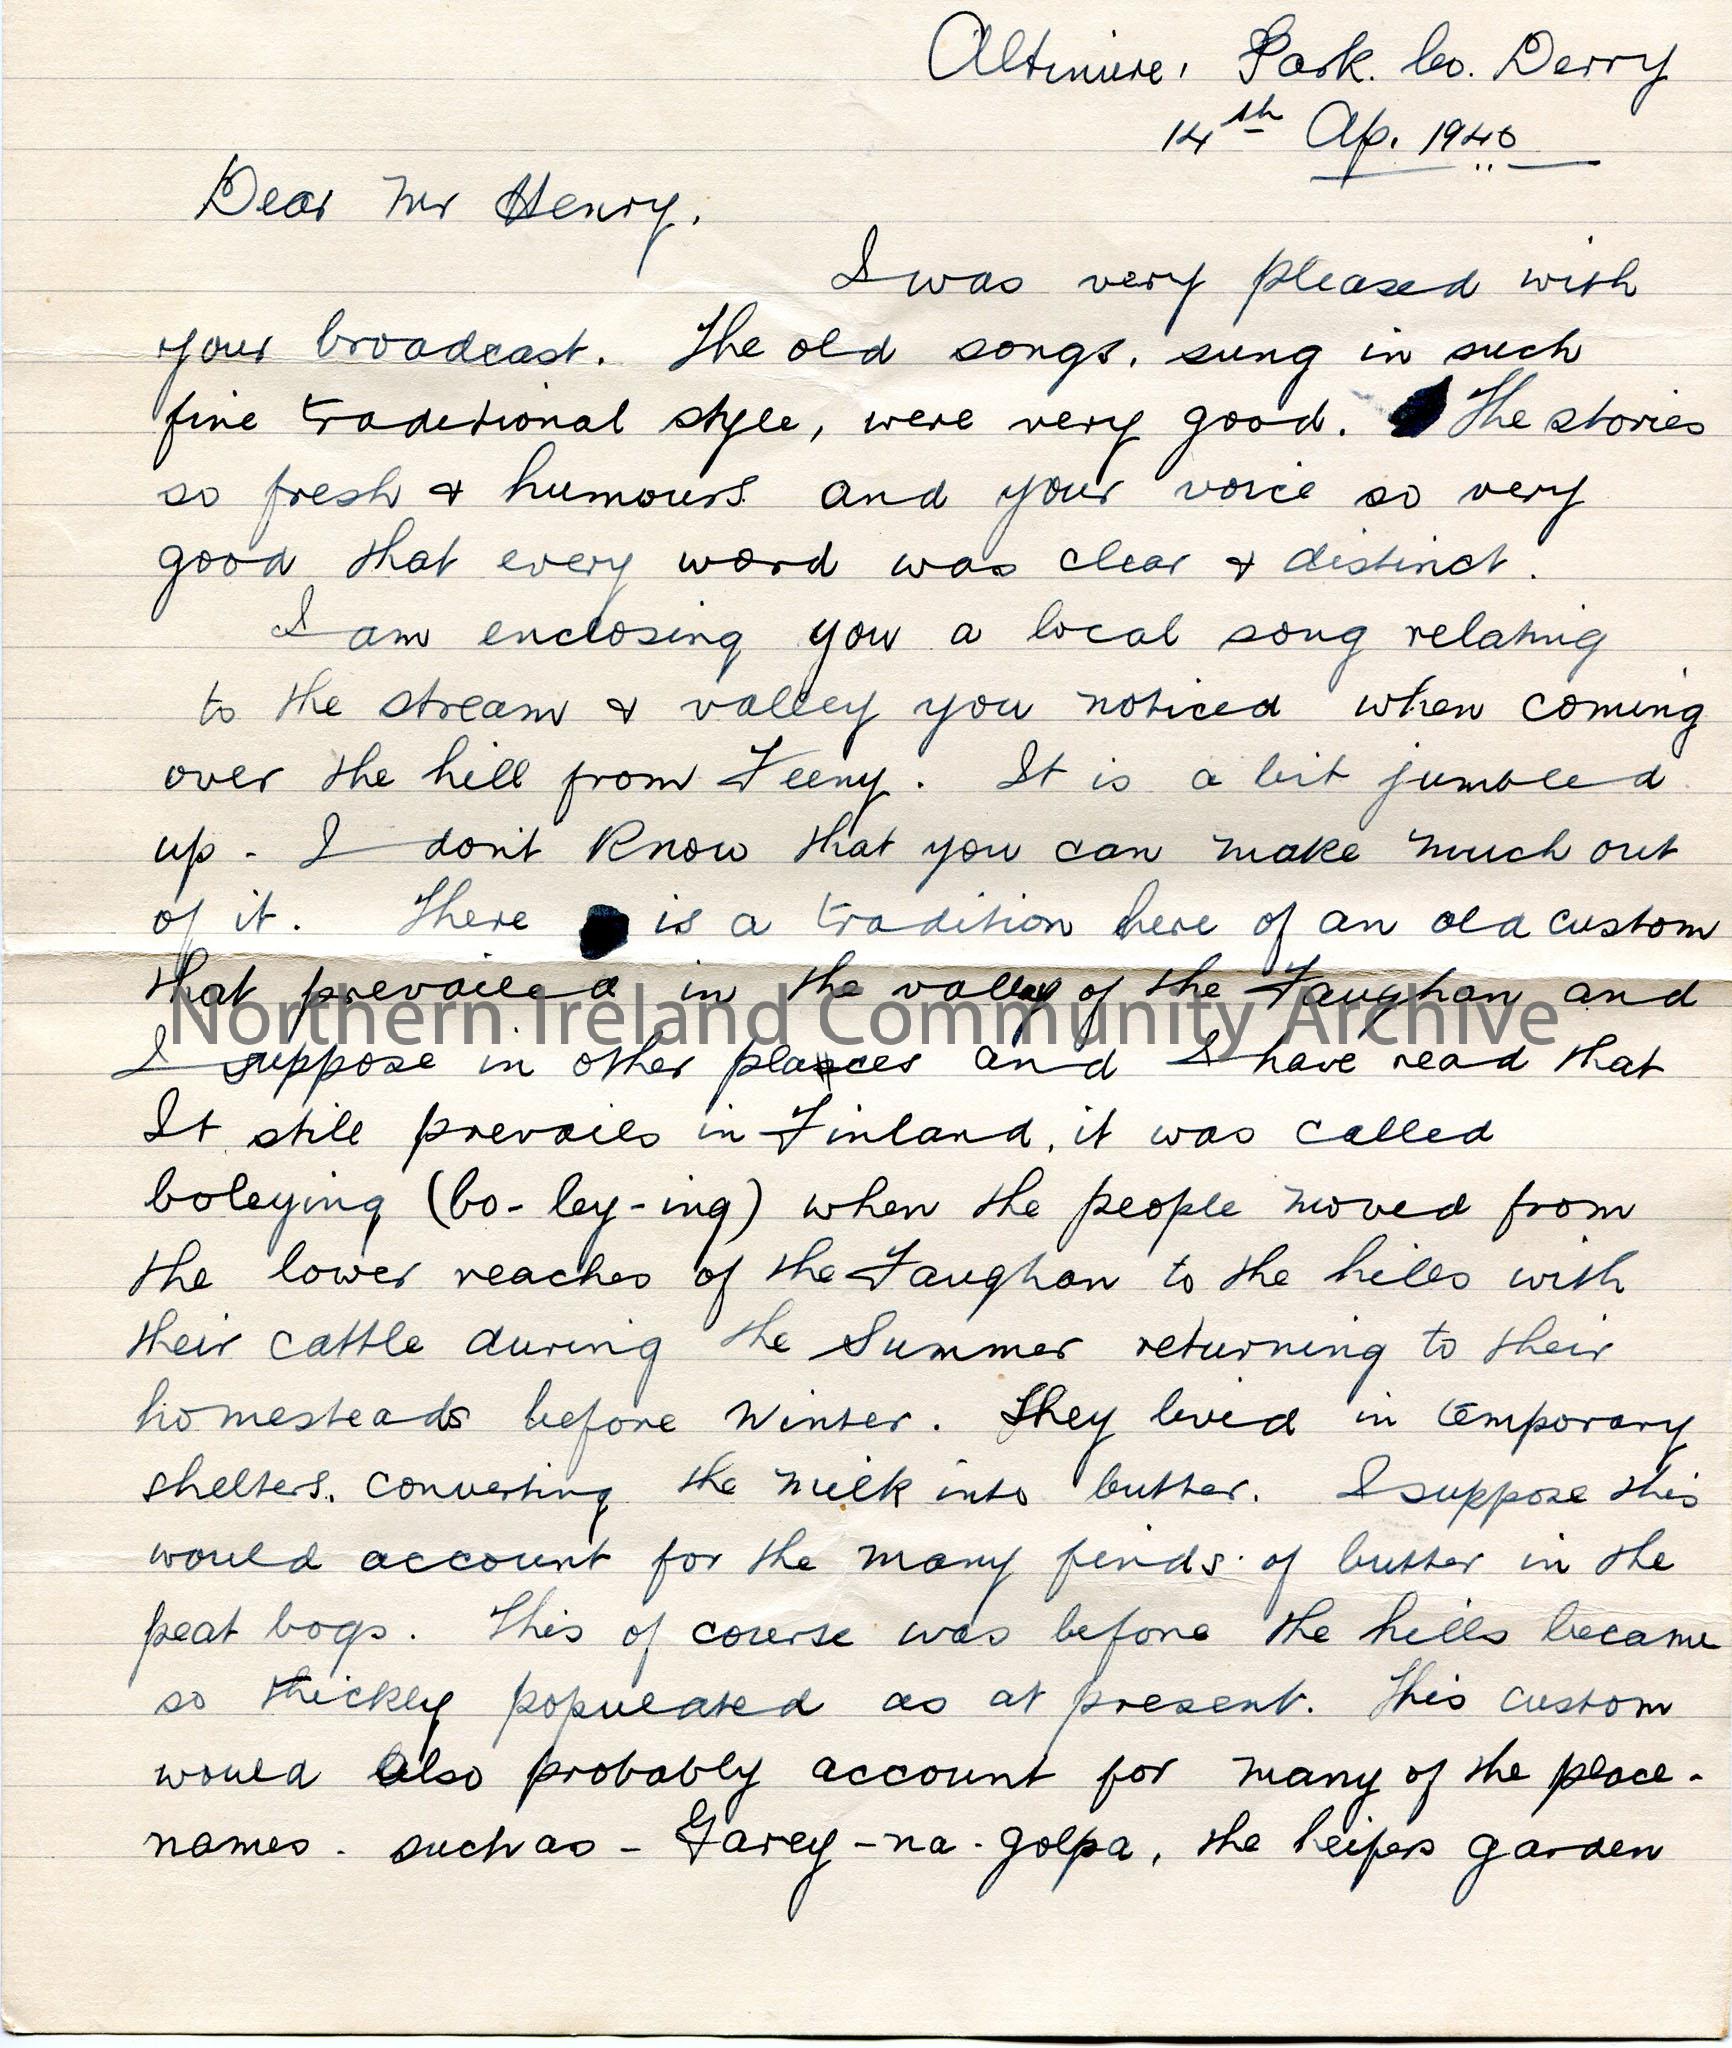 Altinure, Park. Co. Derry
14th Ap. 1940
Dear Mr Henry,
I was very pleased with
your broadcast. The old songs, sung in such
fine traditional style, were very good. The stories
so fresh & humours and your voice so very
good that every word was clear & distinct.
I am enclosing you a local song relating
to the stream & valley you noticed when coming
over the hill from Feeny. It is a bit jumbled
up - I don't know that you can make much out
of it. There is a tradition here of an old custom
that prevailed in the valley of the Faughan and
Northern Ireland Community Archive
I suppose in other places and I have read that
It still prevails in Finland, it was called
boleying (bo-ley-ing) when the people moved from
the lower reaches of the Faughan to the hills with
their cattle during the Summer returning to their
homesteads before Winter. They lived in temporary
shelters, converting the milk into butter. I suppose this
would account for the many finds of butter in the
peat bogs. This of course was before the hills became
so thickly populated as at present. This custom
would also probably account for many of the place-
names - such as - Garey-na-golpa, the heifers garden